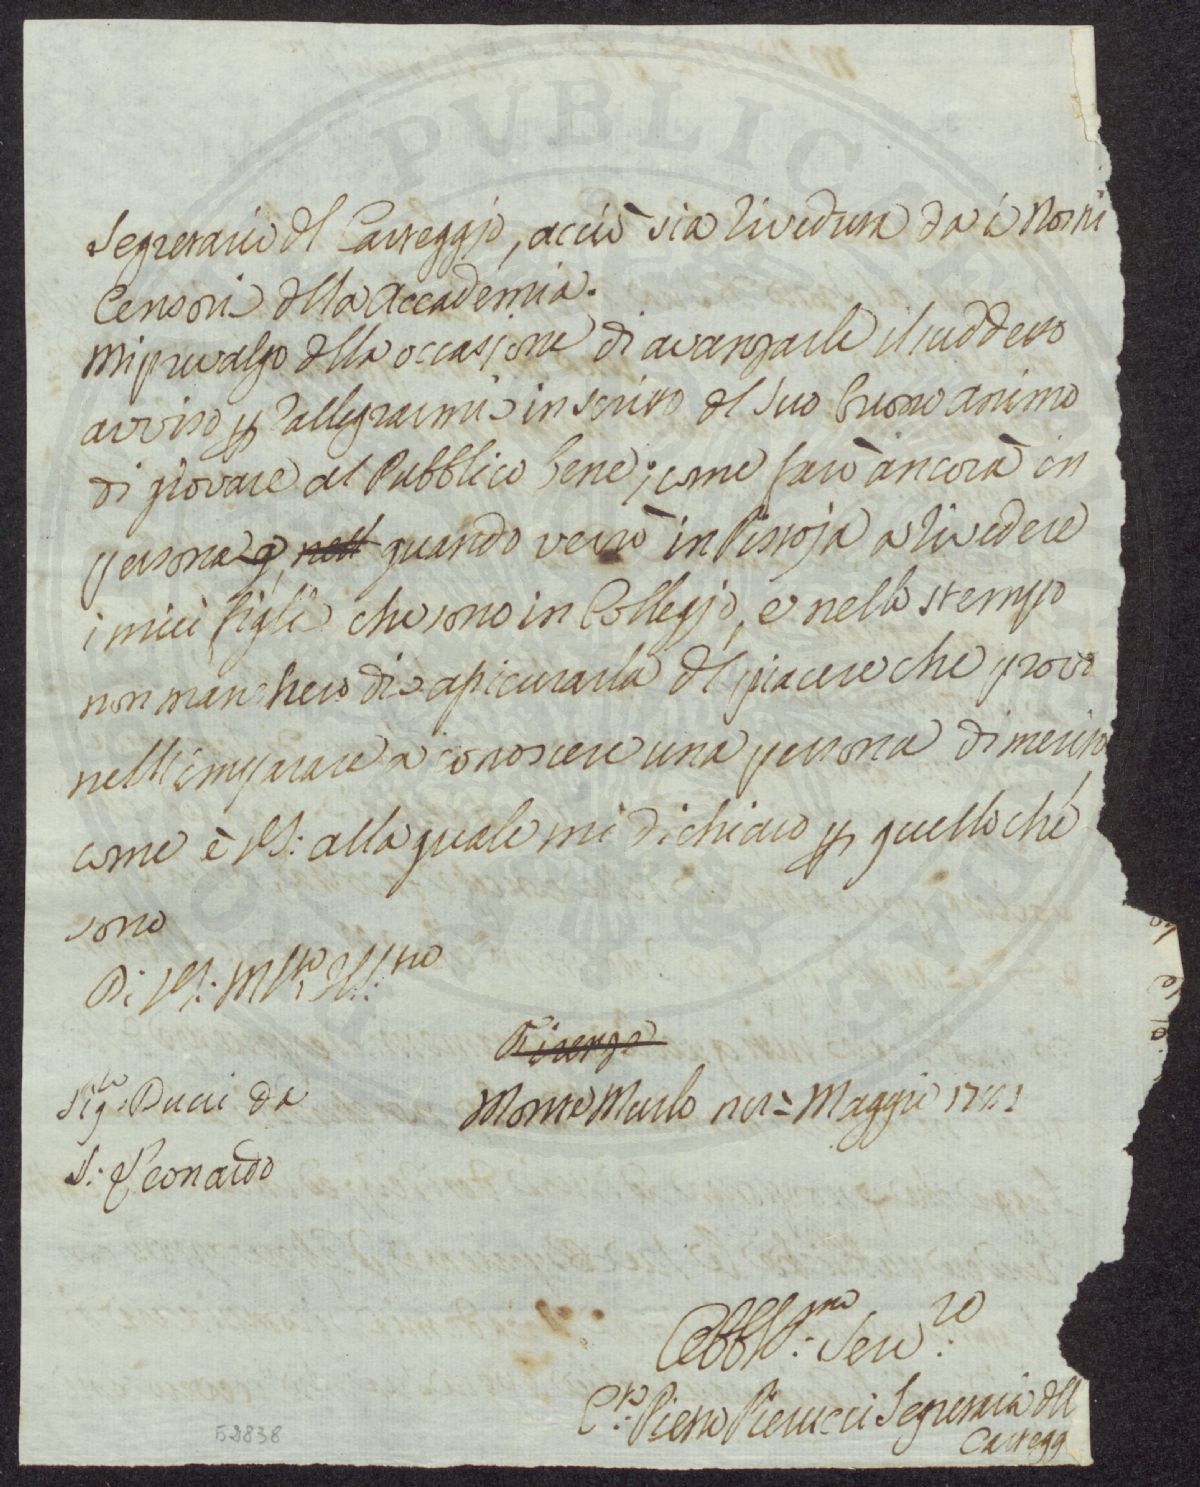 PUBLICAE
Segretario del Carteggio, acciò sia riveduta da i Nostri
Censori della Accademia.
Mi prevalgo della occasione di avanzarle il suddetto
avviso p rallegrarmi in scritto del suo buono animo
di giovare al Pubblico bene; come farò ancora in
persona quando verrò in Pistoja a rivedere
i miei figli che sono in Collegio, e nello stempo
non mancherò di asicurarla del piacere che provo
nell imparare a conoscere una persona di merito
come è VS: alla quale mi dichiaro p quello che
sono
Di VS: M.to Ill.mo
Firenze
Sig.le Ducci da
Monte Murlo Maggio
S: Leonardo
Obbl.mo Serv.ro
C.te Pietro Pierucci Segretario dell
Cartegg
52838